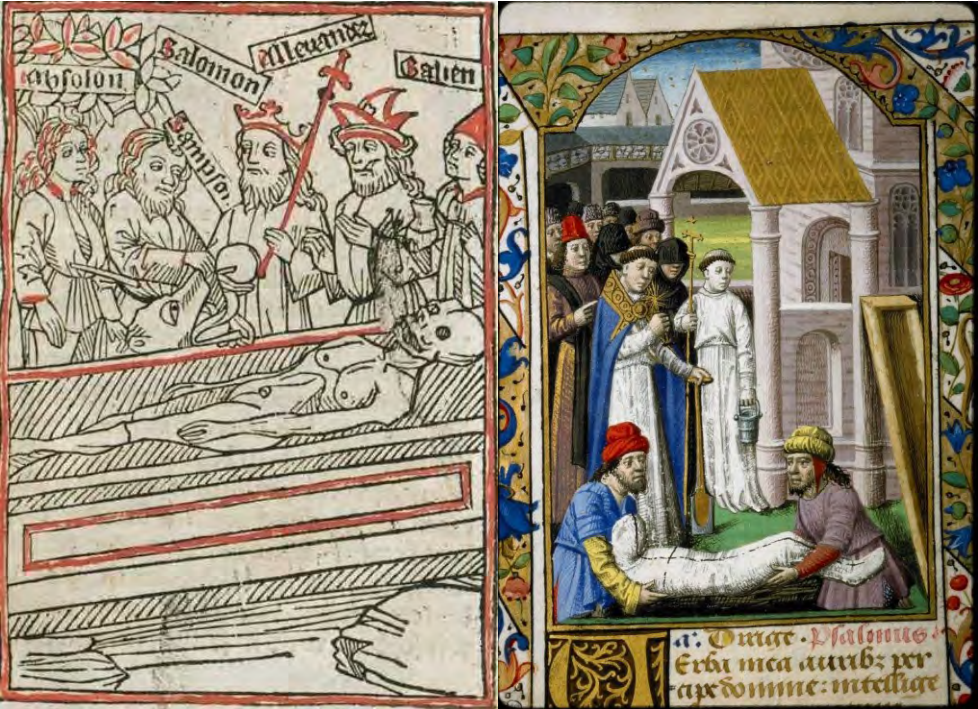 Absolon
Salomon
Allexander
Galien
Sampson
a: Dirige. Psalmus.
Erba mea auribz per
cipe domine: intellige